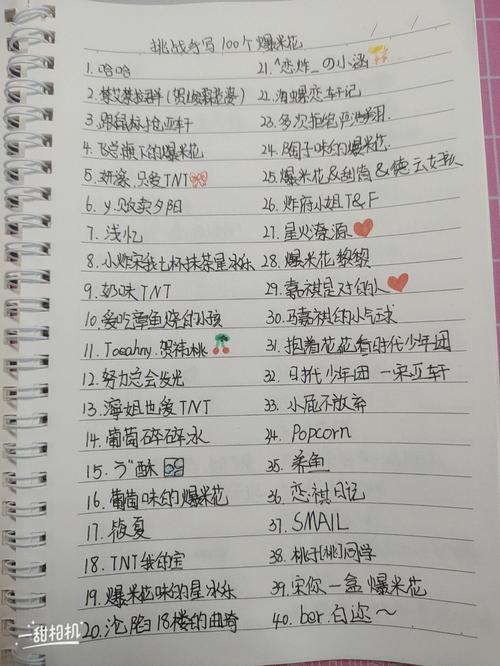 挑战手写100个爆米花
1. 哈哈
2.
3. 跟鼠标抢亚轩
4. 飞完旗下的爆米花
5. 只爱TNT
6. y.贩卖夕阳
7. 浅忆
8. 小炸宋我七杯抹茶星冰乐
9. 奶味TNT
10. 爱吃章鱼烧的小孩
11. 贺祎桃
12. 努力定会发光
13. 澪姐也爱TNT
14. 葡萄碎碎冰
15. 酥
16. 葡萄味的爆米花
17. 夏
18. TNT我的宝
19. 爆米花味的星冰乐
20. 沦陷18楼的曲奇
21. ^恋炸_の小涵
22. 恋轩记
23. 多次拒绝严浩翔
24. 陶子味的爆米花
25. 爆米花&刮霄&德云女孩
26. 炸府小姐T&F
27. 星火潦源
28. 爆米花黎黎
29. 嘉祺是对的人
30. 马嘉祺的小气球
31. 抱着花花看时代少年团
32. 时代少年团一宋亚轩
33. 小尾不放弃
34. Popcorn
35. 养鱼
36. 恋祺日记
37. SMAIL
38. 桃子[桃]同学
39. 宋你一盒爆米花
40. ber.白迩～
一甜相机